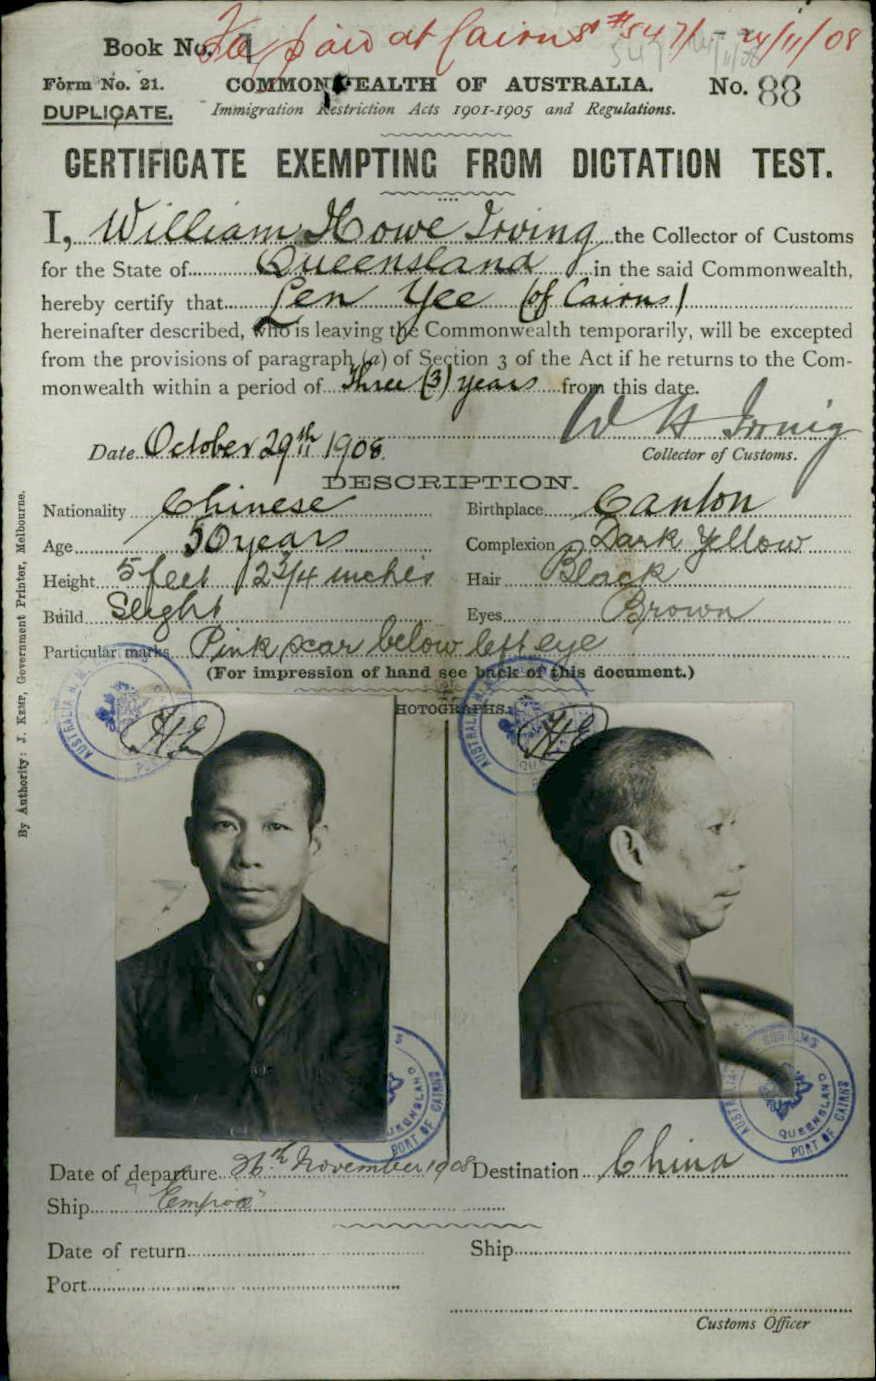 Fee paid at Cairns # 5471 - 24/11/08
Book No. 1
Form No. 21. COMMONWEALTH OF AUSTRALIA. No. 88
DUPLICATE. Immigration Restriction Acts 1901-1905 and Regulations.
CERTIFICATE EXEMPTING FROM DICTATION TEST.
I, William Howe Irving the Collector of Customs
for the State of Queensland in the said Commonwealth,
hereby certify that Len Yee (of Cairns)
hereinafter described, who is leaving the Commonwealth temporarily, will be excepted
from the provisions of paragraph (a) of Section 3 of the Act if he returns to the Com-
monwealth within a period of Three (3) years from this date.
W H Irving
Date October 29th 1908. Collector of Customs.
DESCRIPTION.
Nationality Chinese Birthplace Canton
Age 50 years Complexion Dark Yellow
Height 5 feet 2 3/4 inches Hair Black
Build Slight Eyes Brown
Particular marks Pink scar below left eye
(For impression of hand see back of this document.)
PHOTOGRAPHS.
By Authority: J. KEMP, Government Printer, Melbourne.
AUSTRALIA
AUSTRALIA
QUEENSLAND
PORT OF CAIRNS
AUSTRALIA CUSTOMS
QUEENSLAND
PORT OF CAIRNS
Date of departure 26th November 1908 Destination China
Ship "Empire"
Date of return Ship
Port
Customs Officer